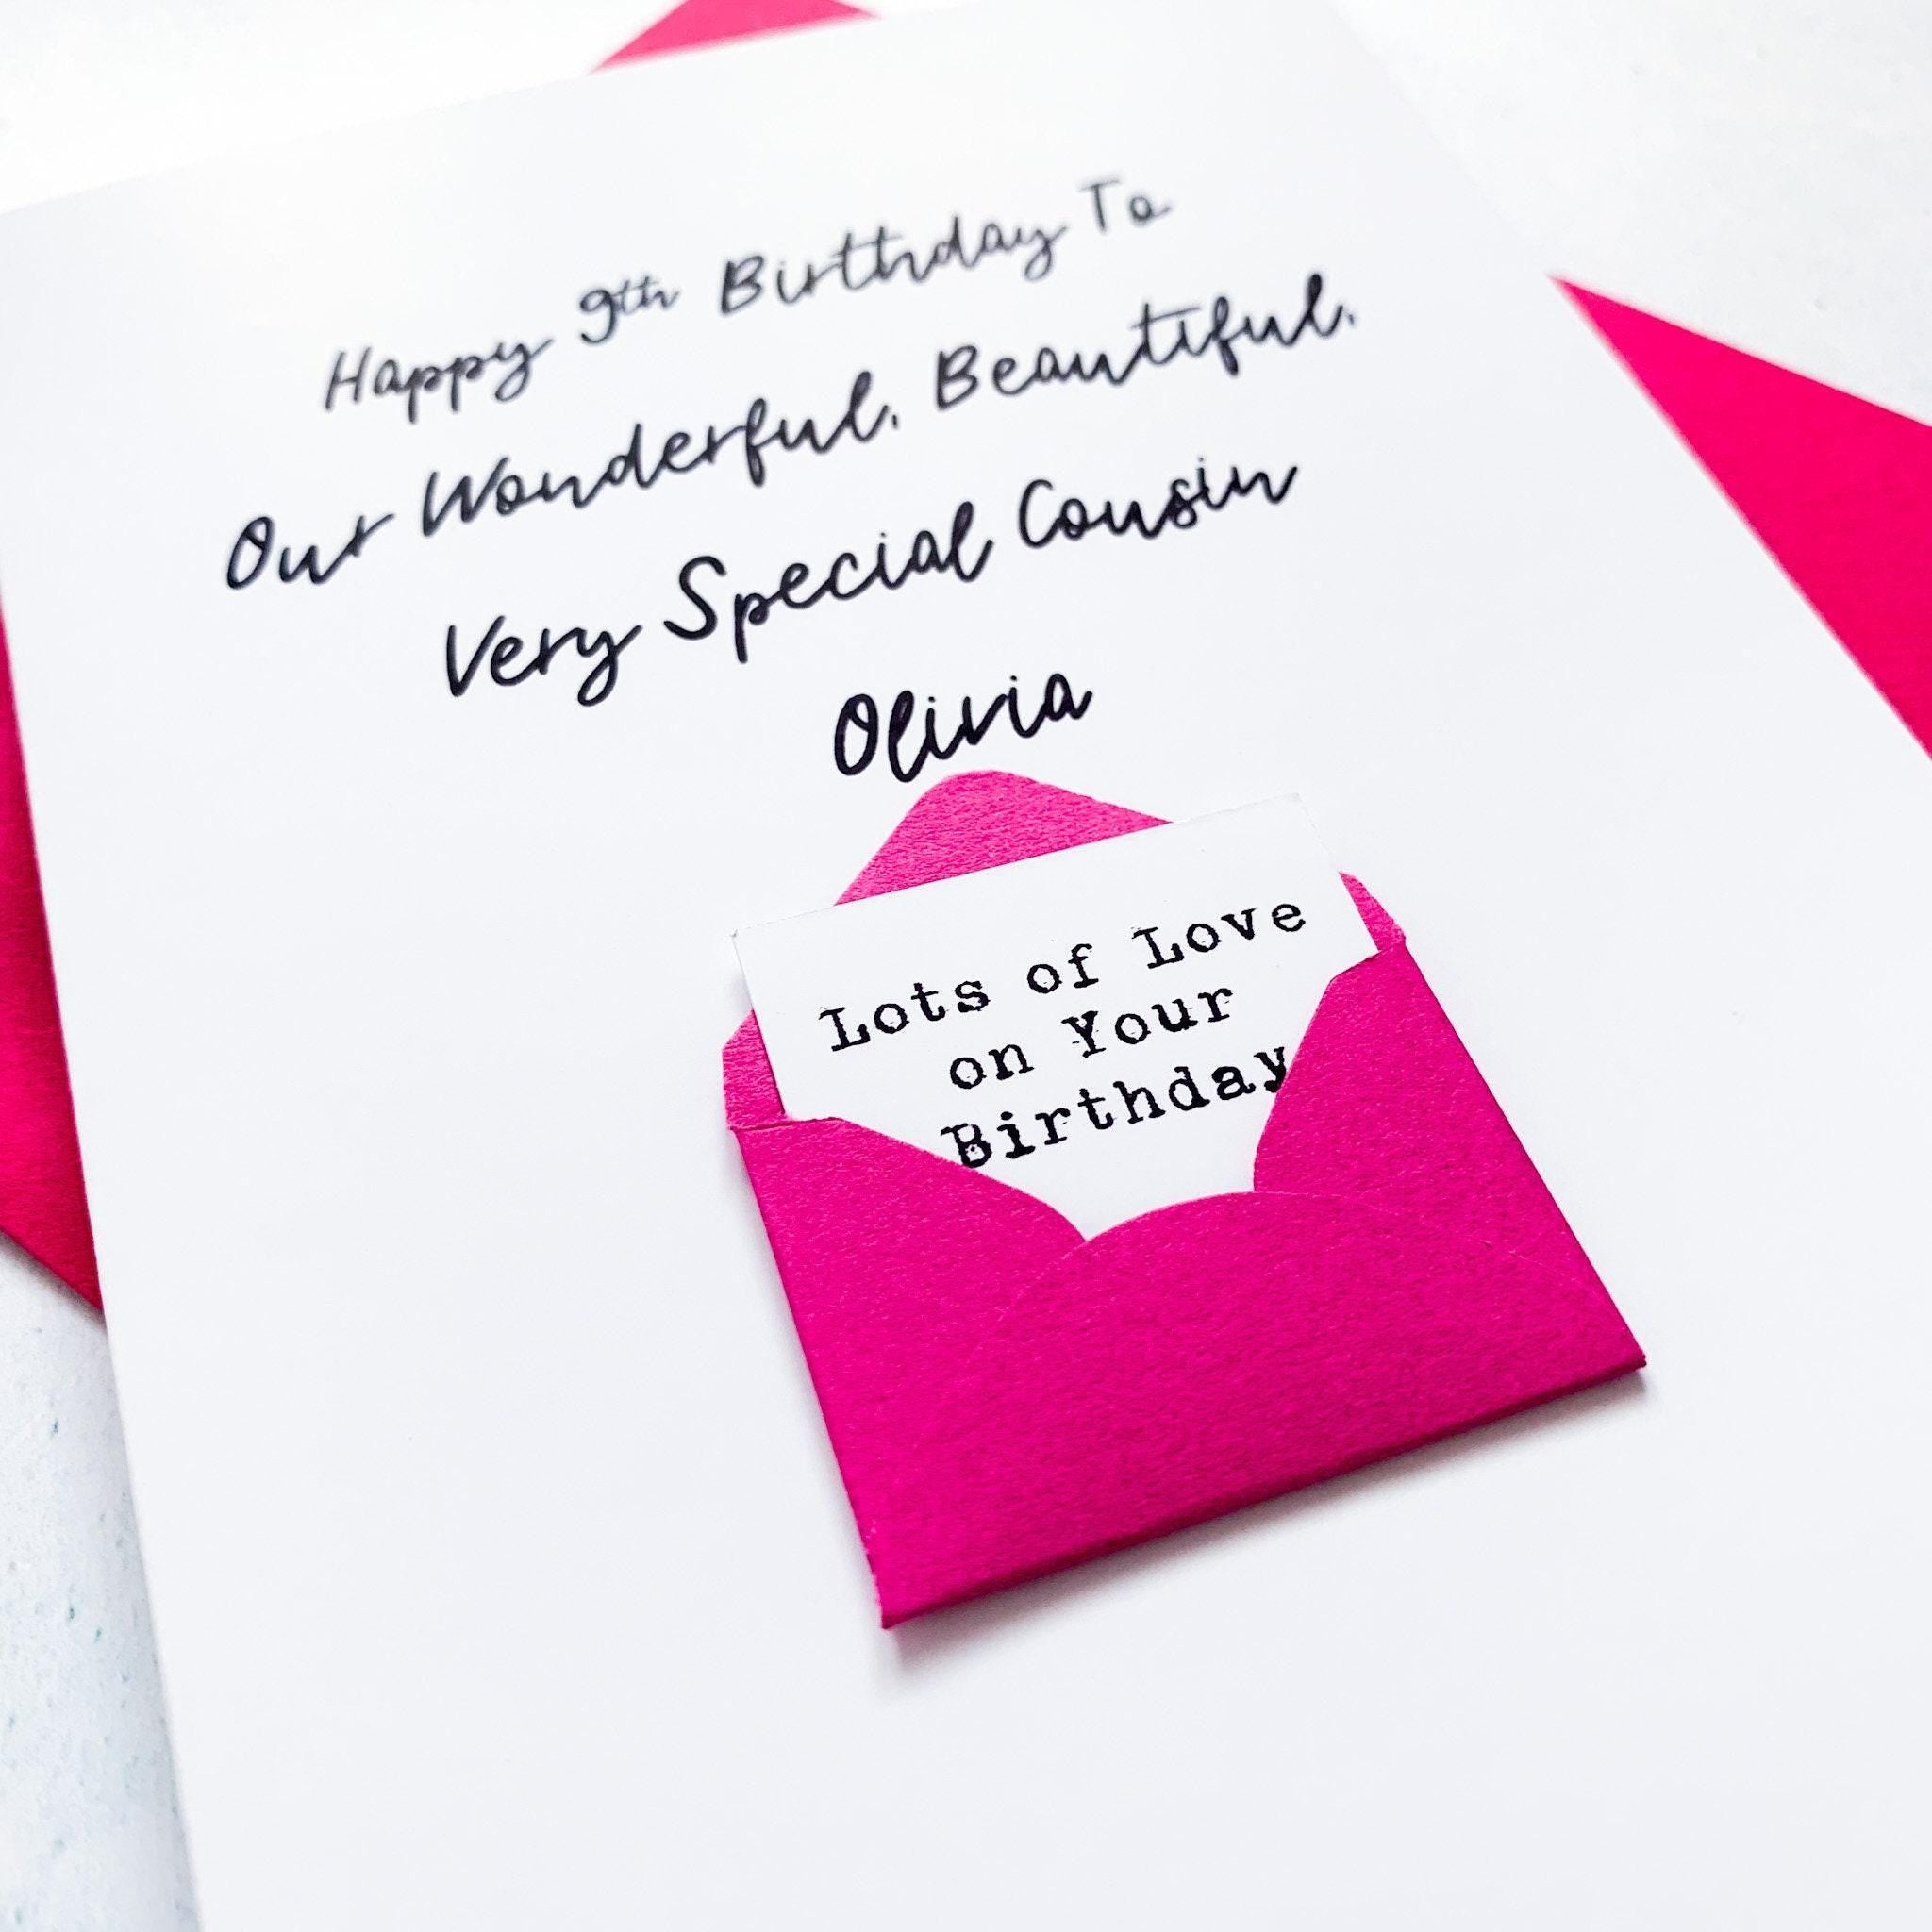 Happy 9th Birthday To
Our Wonderful, Beautiful,
Very Special Cousin
Olivia
Lots of Love
on Your
Birthday